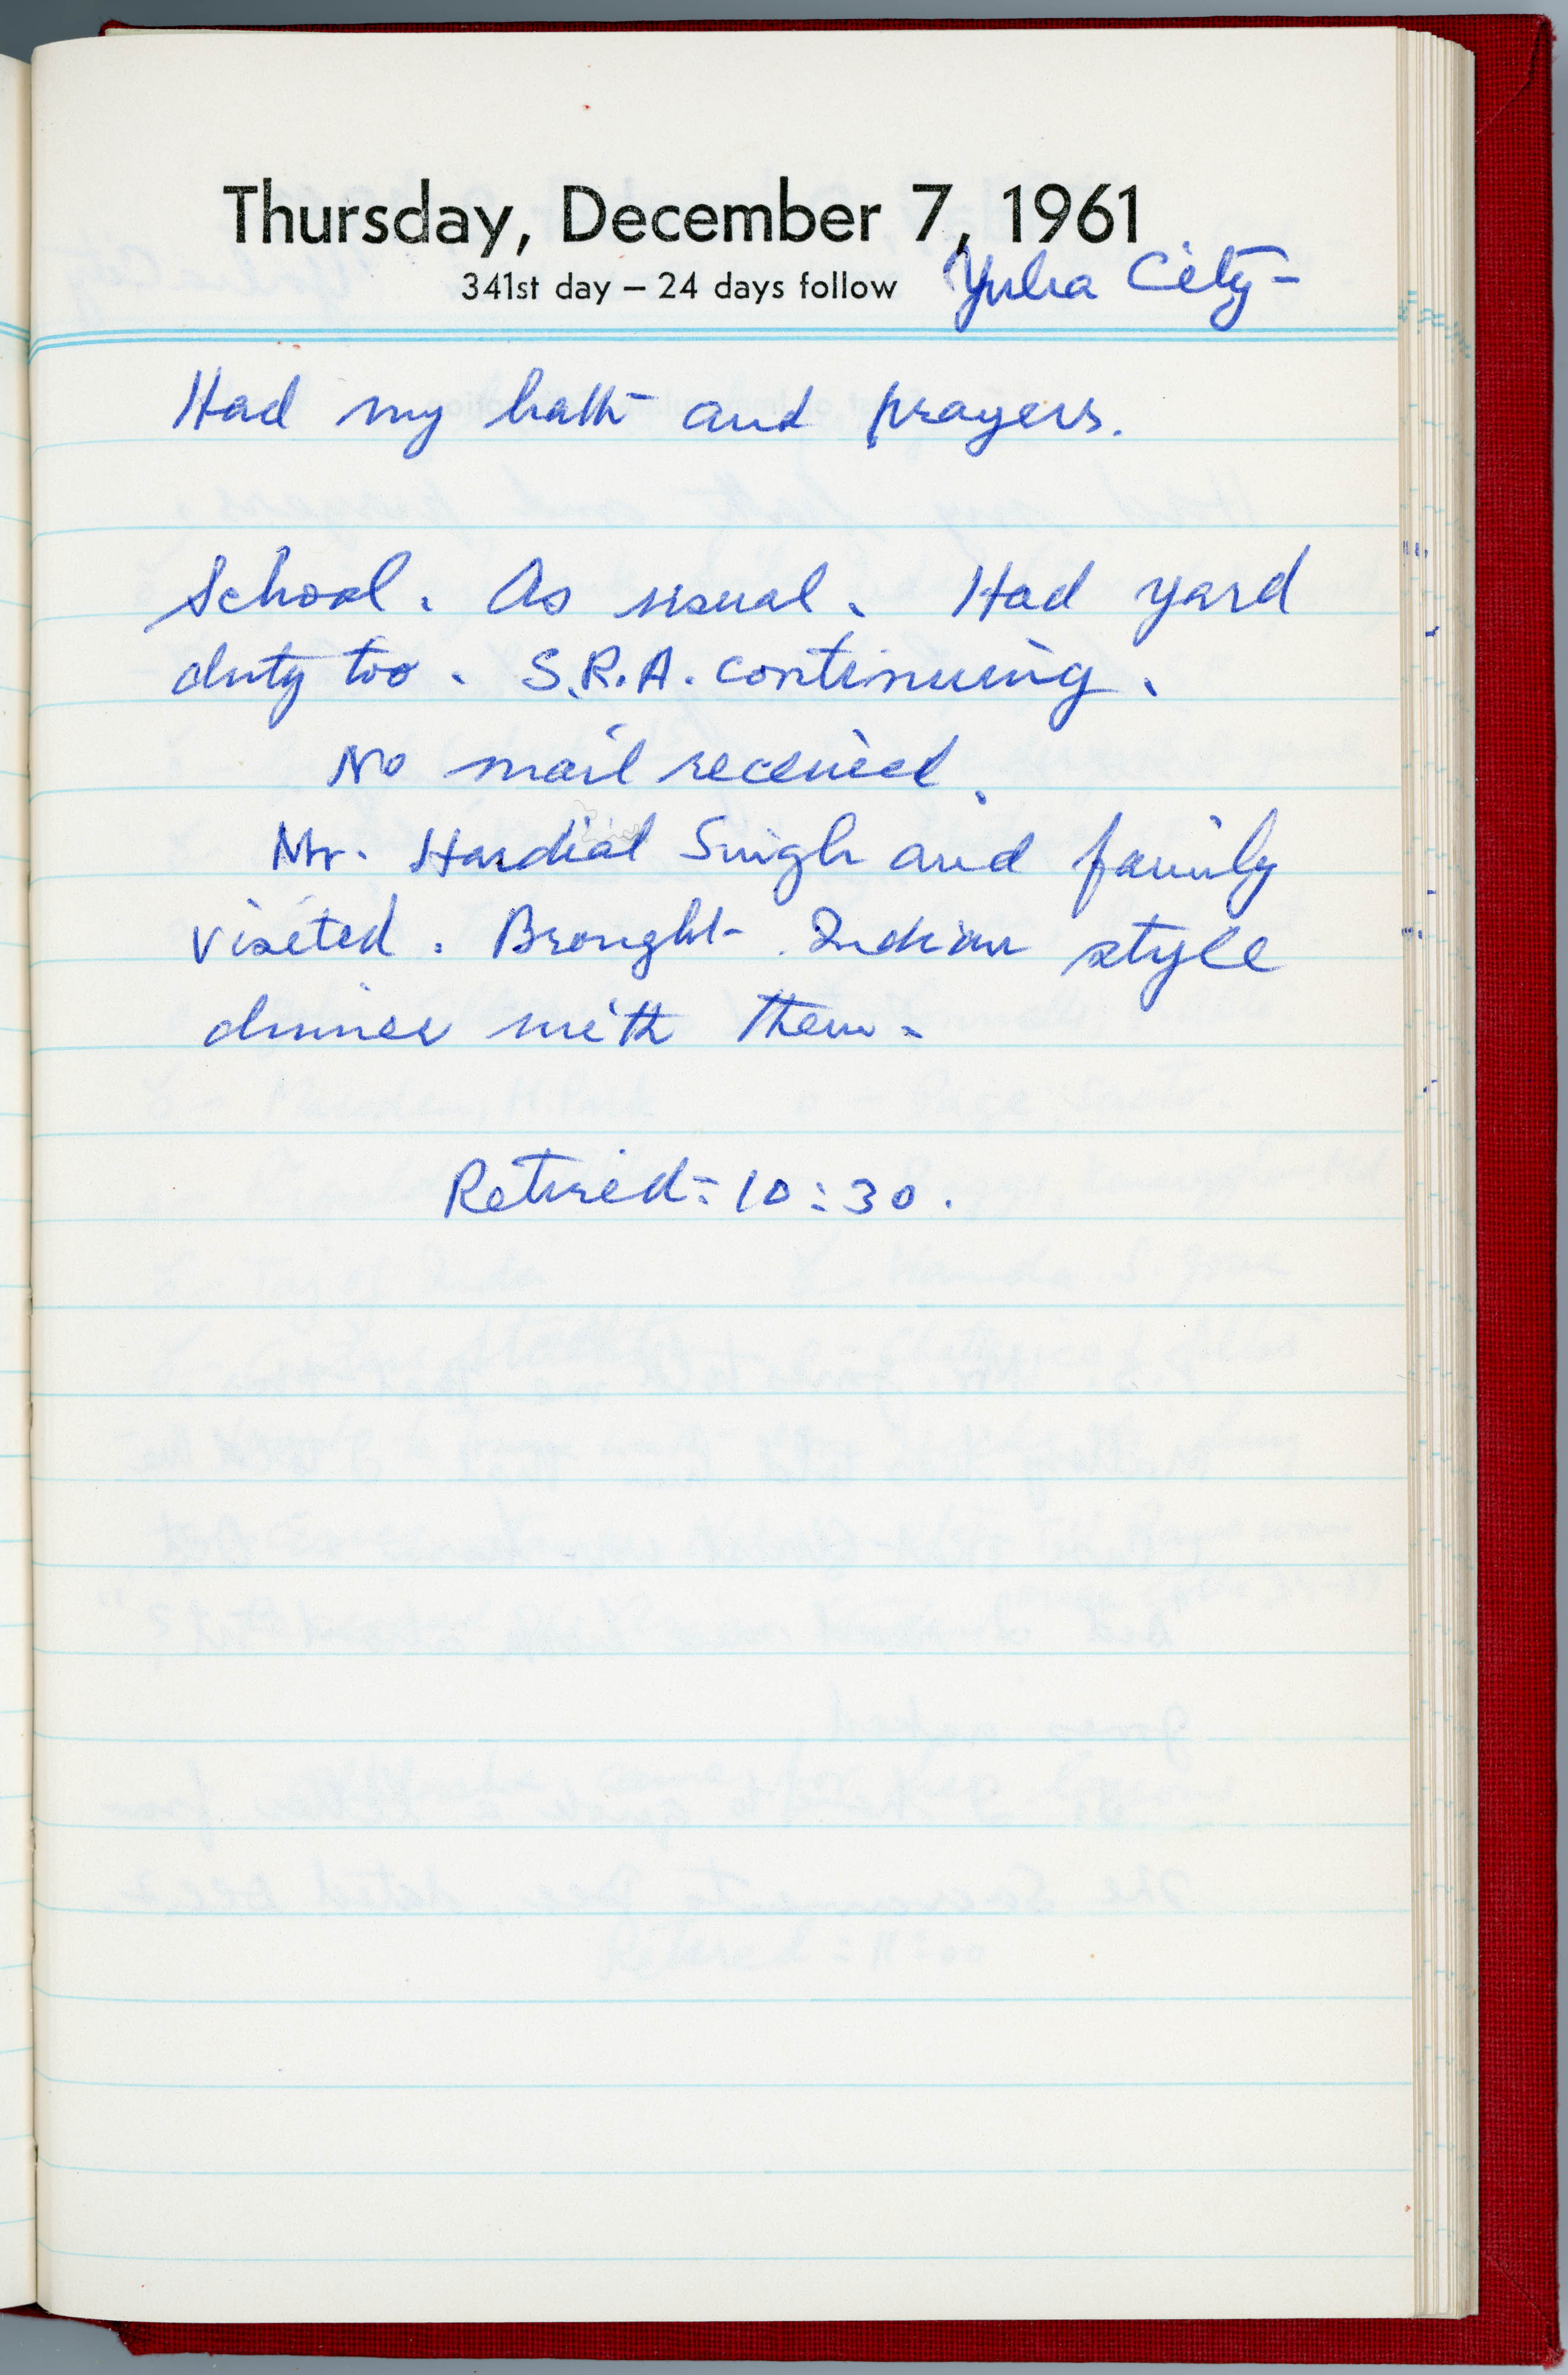 Thursday, December 7, 1961
341st day – 24 days follow Yuba City-
Had my bath and prayers.
School. As usual. Had yard
duty too. S.R.A. continuing.
No mail received.
Mr. Hardial Singh and family
visited. Brought Indian style
dinner with them.
Retired: 10:30.